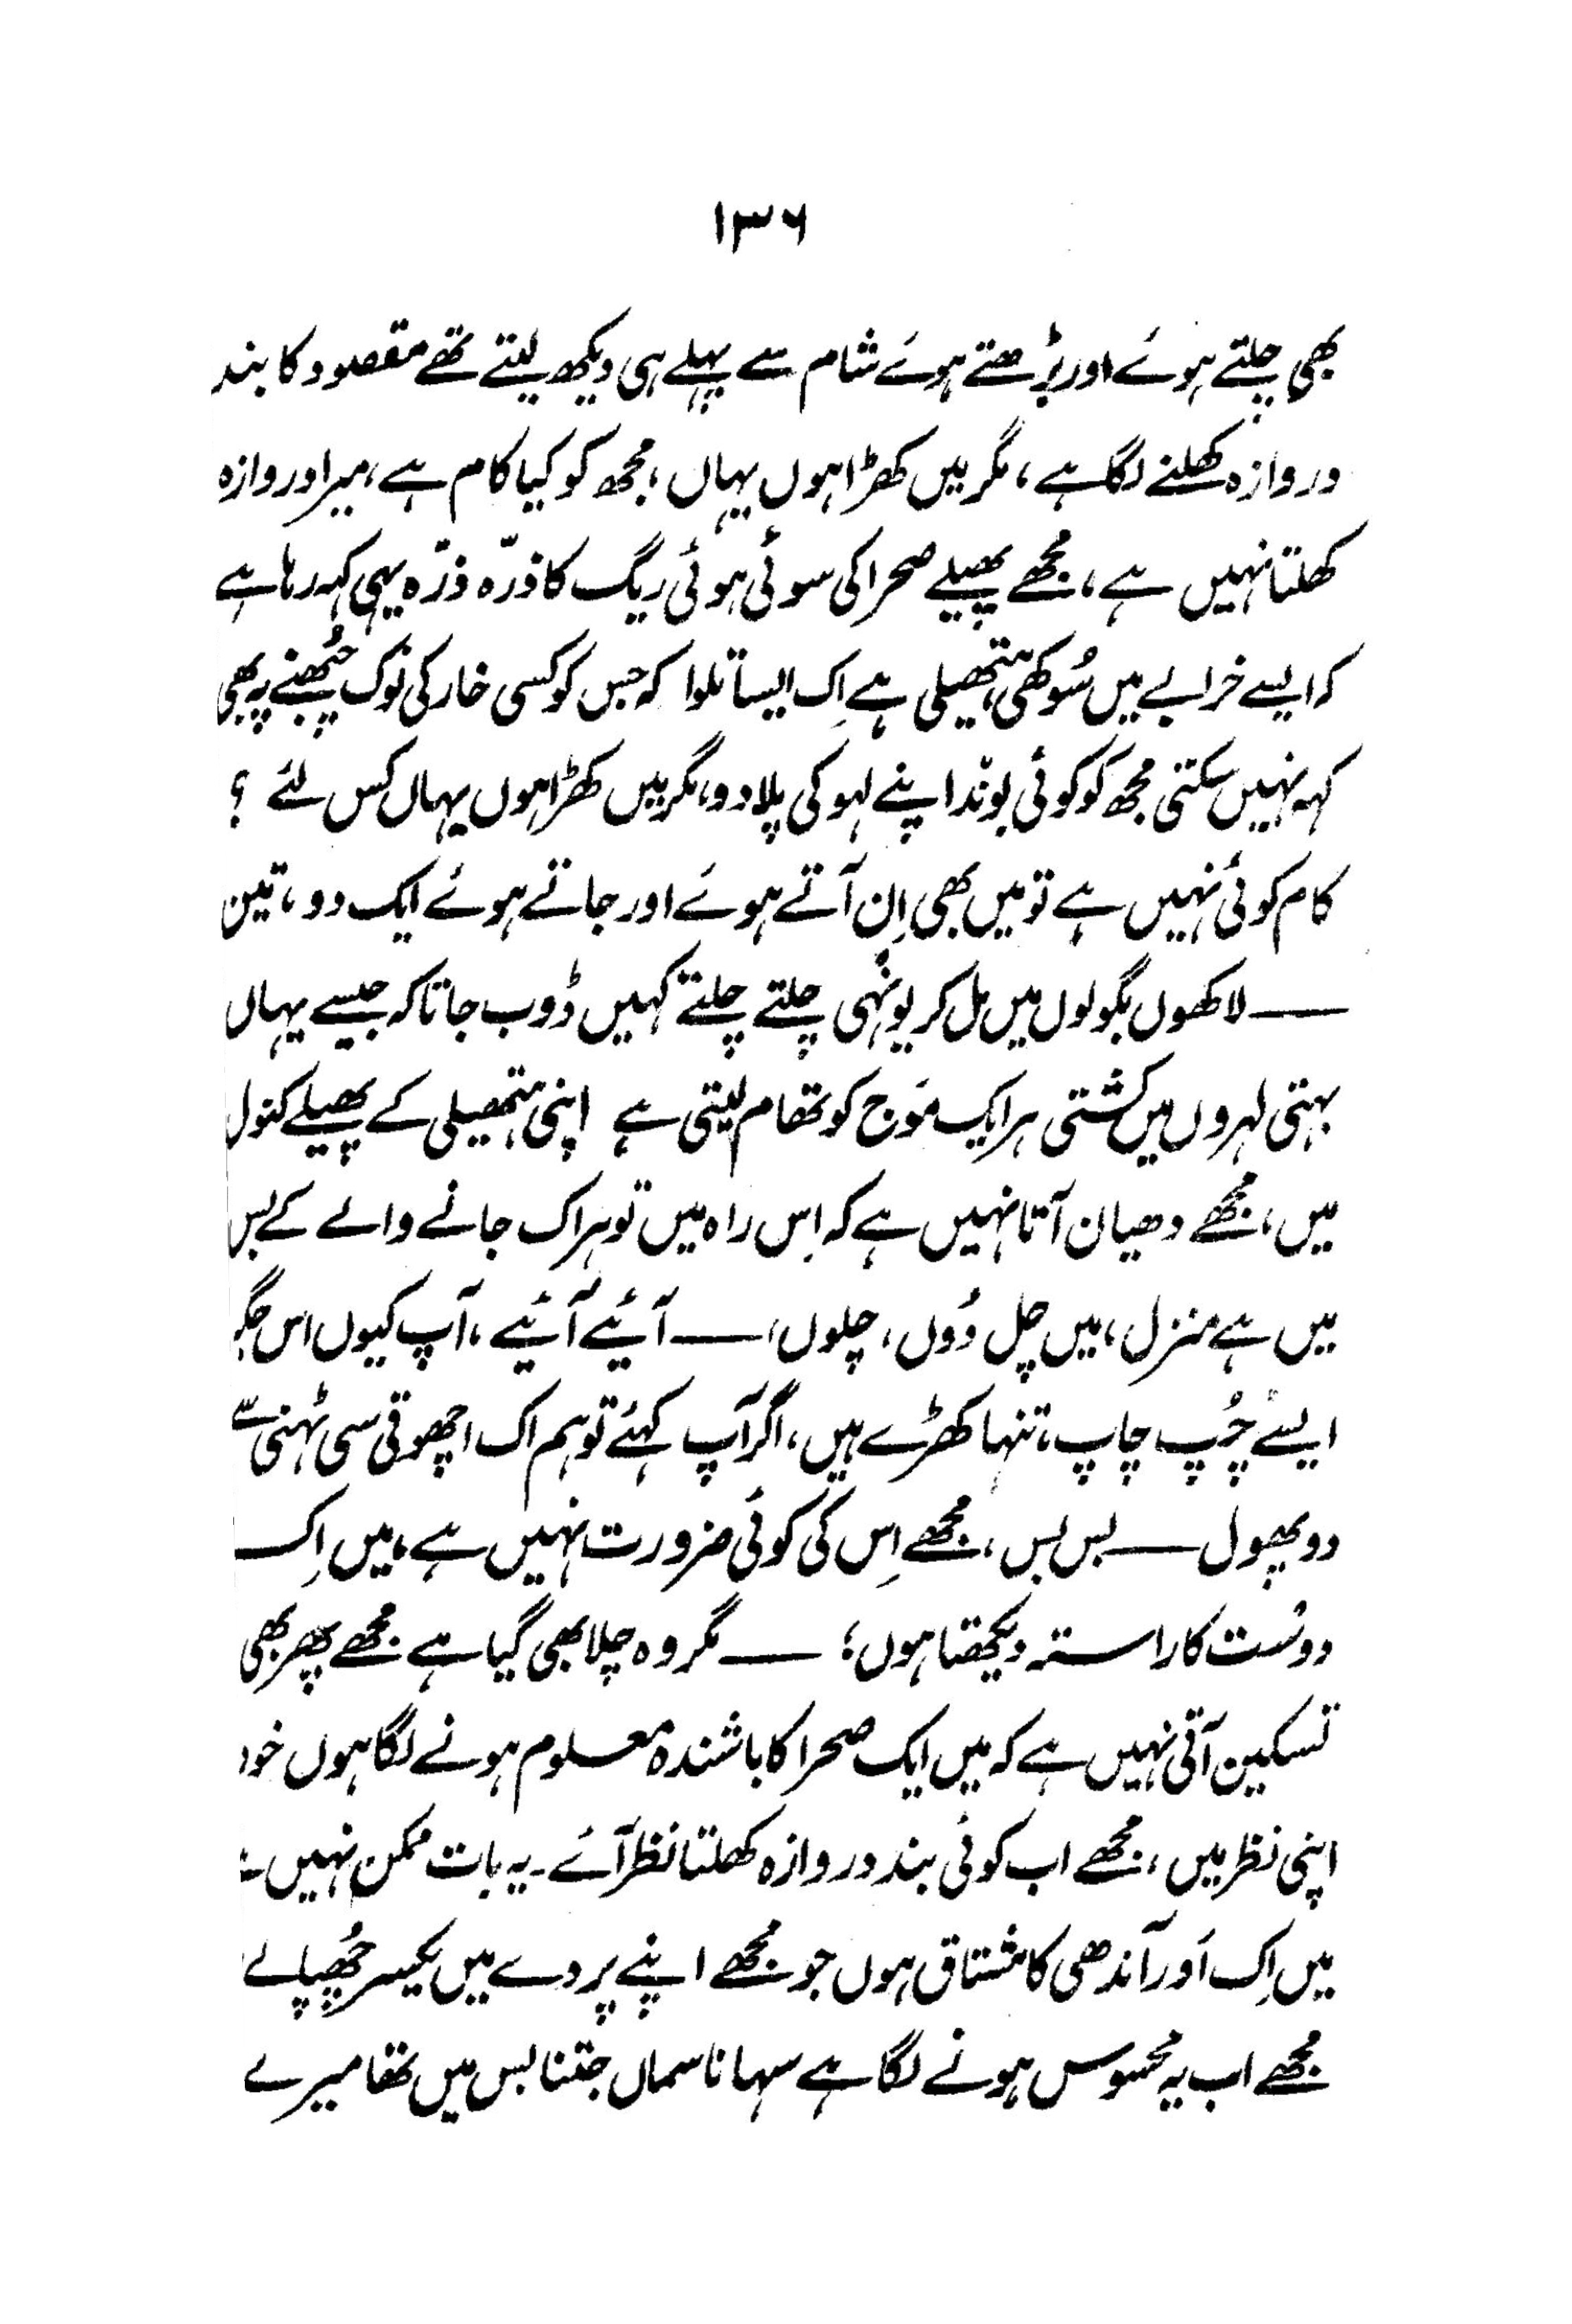 ۱۳۶
بھی چلتے ہوئے اور بڑھتے ہوئے شام سے پہلے ہی دیکھ لیتے تھے مقصود کا بند
دروازہ کھلنے لگا ہے، مگر میں کھڑا ہوں یہاں، مجھ کو کیا کام ہے، میرا دروازہ
کھلتا نہیں ہے، مجھے پھیلے صحرا کی سوئی ہوئی ریگ کا ذرّہ ذرّہ یہی کہہ رہا ہے
کہ ایسے خرابے میں سُوکھی ہتھیلی ہے اِک ایسا تلوا کہ جس کو کسی خار کی نوک چُبھنے پہ بھی
کہہ نہیں سکتی مجھ کو کوئی بوند اپنے لہو کی پلا دو، مگر میں کھڑا ہوں یہاں کس لئے ؟
کام کوئی نہیں ہے تو میں بھی اِن آتے ہوئے اور جاتے ہوئے ایک دو، تین
— لاکھوں بگولوں میں مل کر یونہی چلتے چلتے کہیں ڈوب جاتا کہ جیسے یہاں
بہتی لہروں میں کشتی ہر ایک مَوج کو تھام لیتی ہے اپنی ہتھیلی کے پھیلے کنول
میں، مجھے دھیان آتا نہیں ہے کہ اِس راہ میں تو ہر اک جانے والے کے بس
میں ہے منزل، میں چل دُوں، چلوں، — آئیے آئیے، آپ کیوں اس جگہ
ایسے چُپ چاپ، تنہا کھڑے ہیں، اگر آپ کہئے تو ہم اک اچھوتی سی ٹہنی سے
دو پھول — بس بس، مجھے اِس کی کوئی ضرورت نہیں ہے، میں اِک
دوست کا راستہ دیکھتا ہوں؛ — مگر وہ چلا بھی گیا ہے مجھے پھر بھی
تسکین آتی نہیں ہے کہ میں ایک صحرا کا باشندہ معلوم ہونے لگا ہوں خود
اپنی نظر میں، مجھے اب کوئی بند دروازہ کھلتا نظر آئے۔ یہ بات ممکن نہیں ہے
میں اِک اَور آندھی کا مشتاق ہوں جو مجھے اپنے پردے میں یکسر چُھپا لے
مجھے اب یہ محسوس ہونے لگا ہے سہانا سماں جتنا بس میں تھا میرے